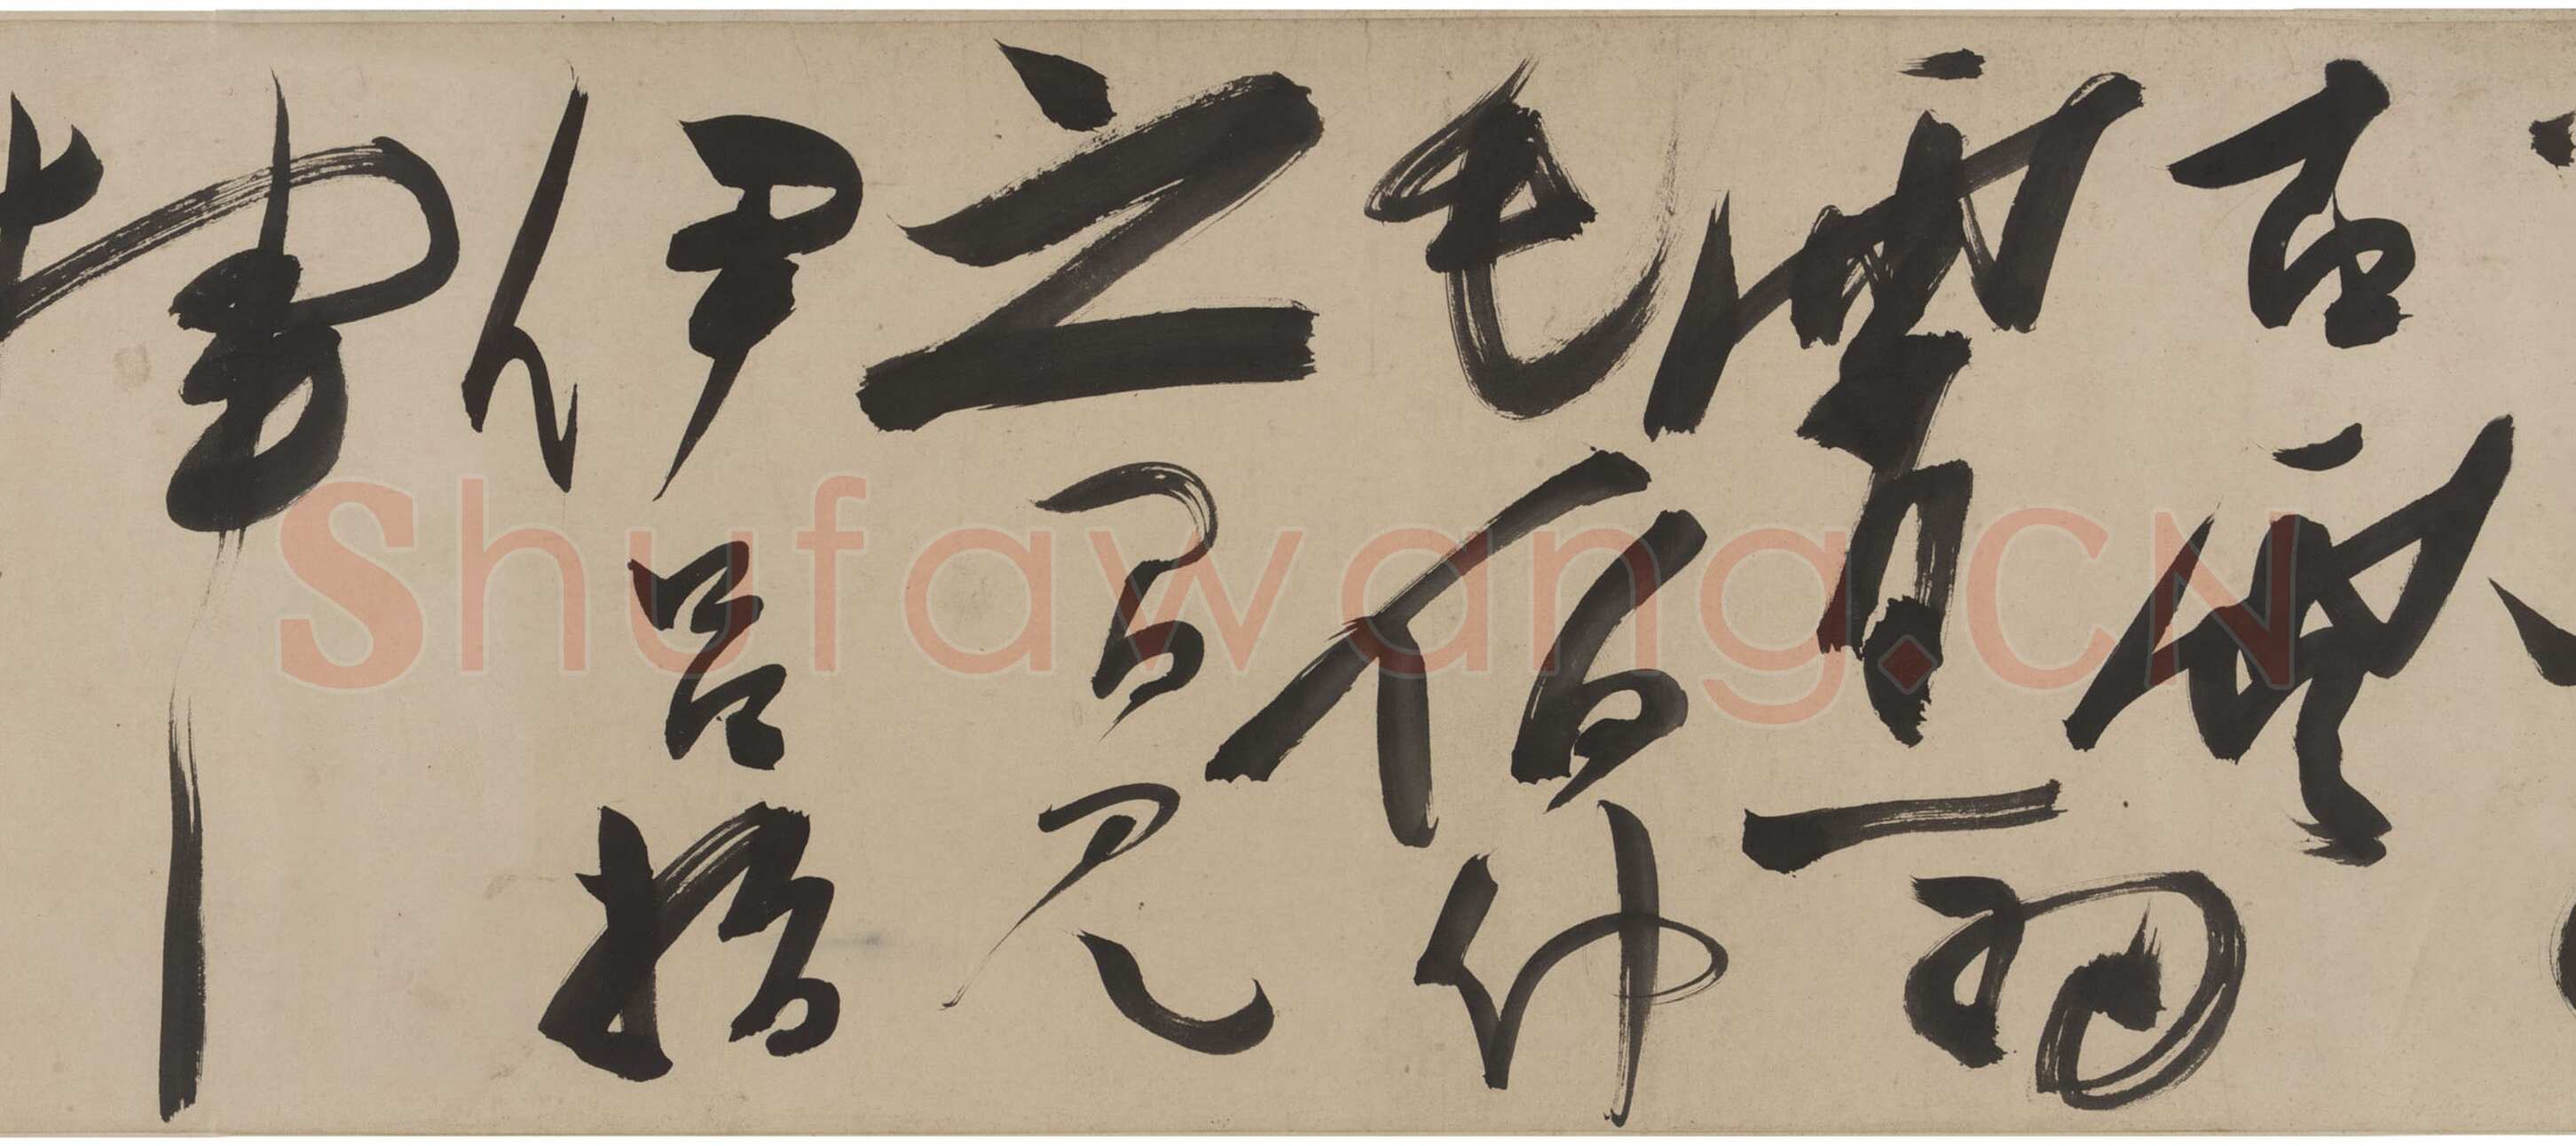 古雲
霄一羽
毛伯仲
之間見
伊呂指
揮
Shufawang.CN